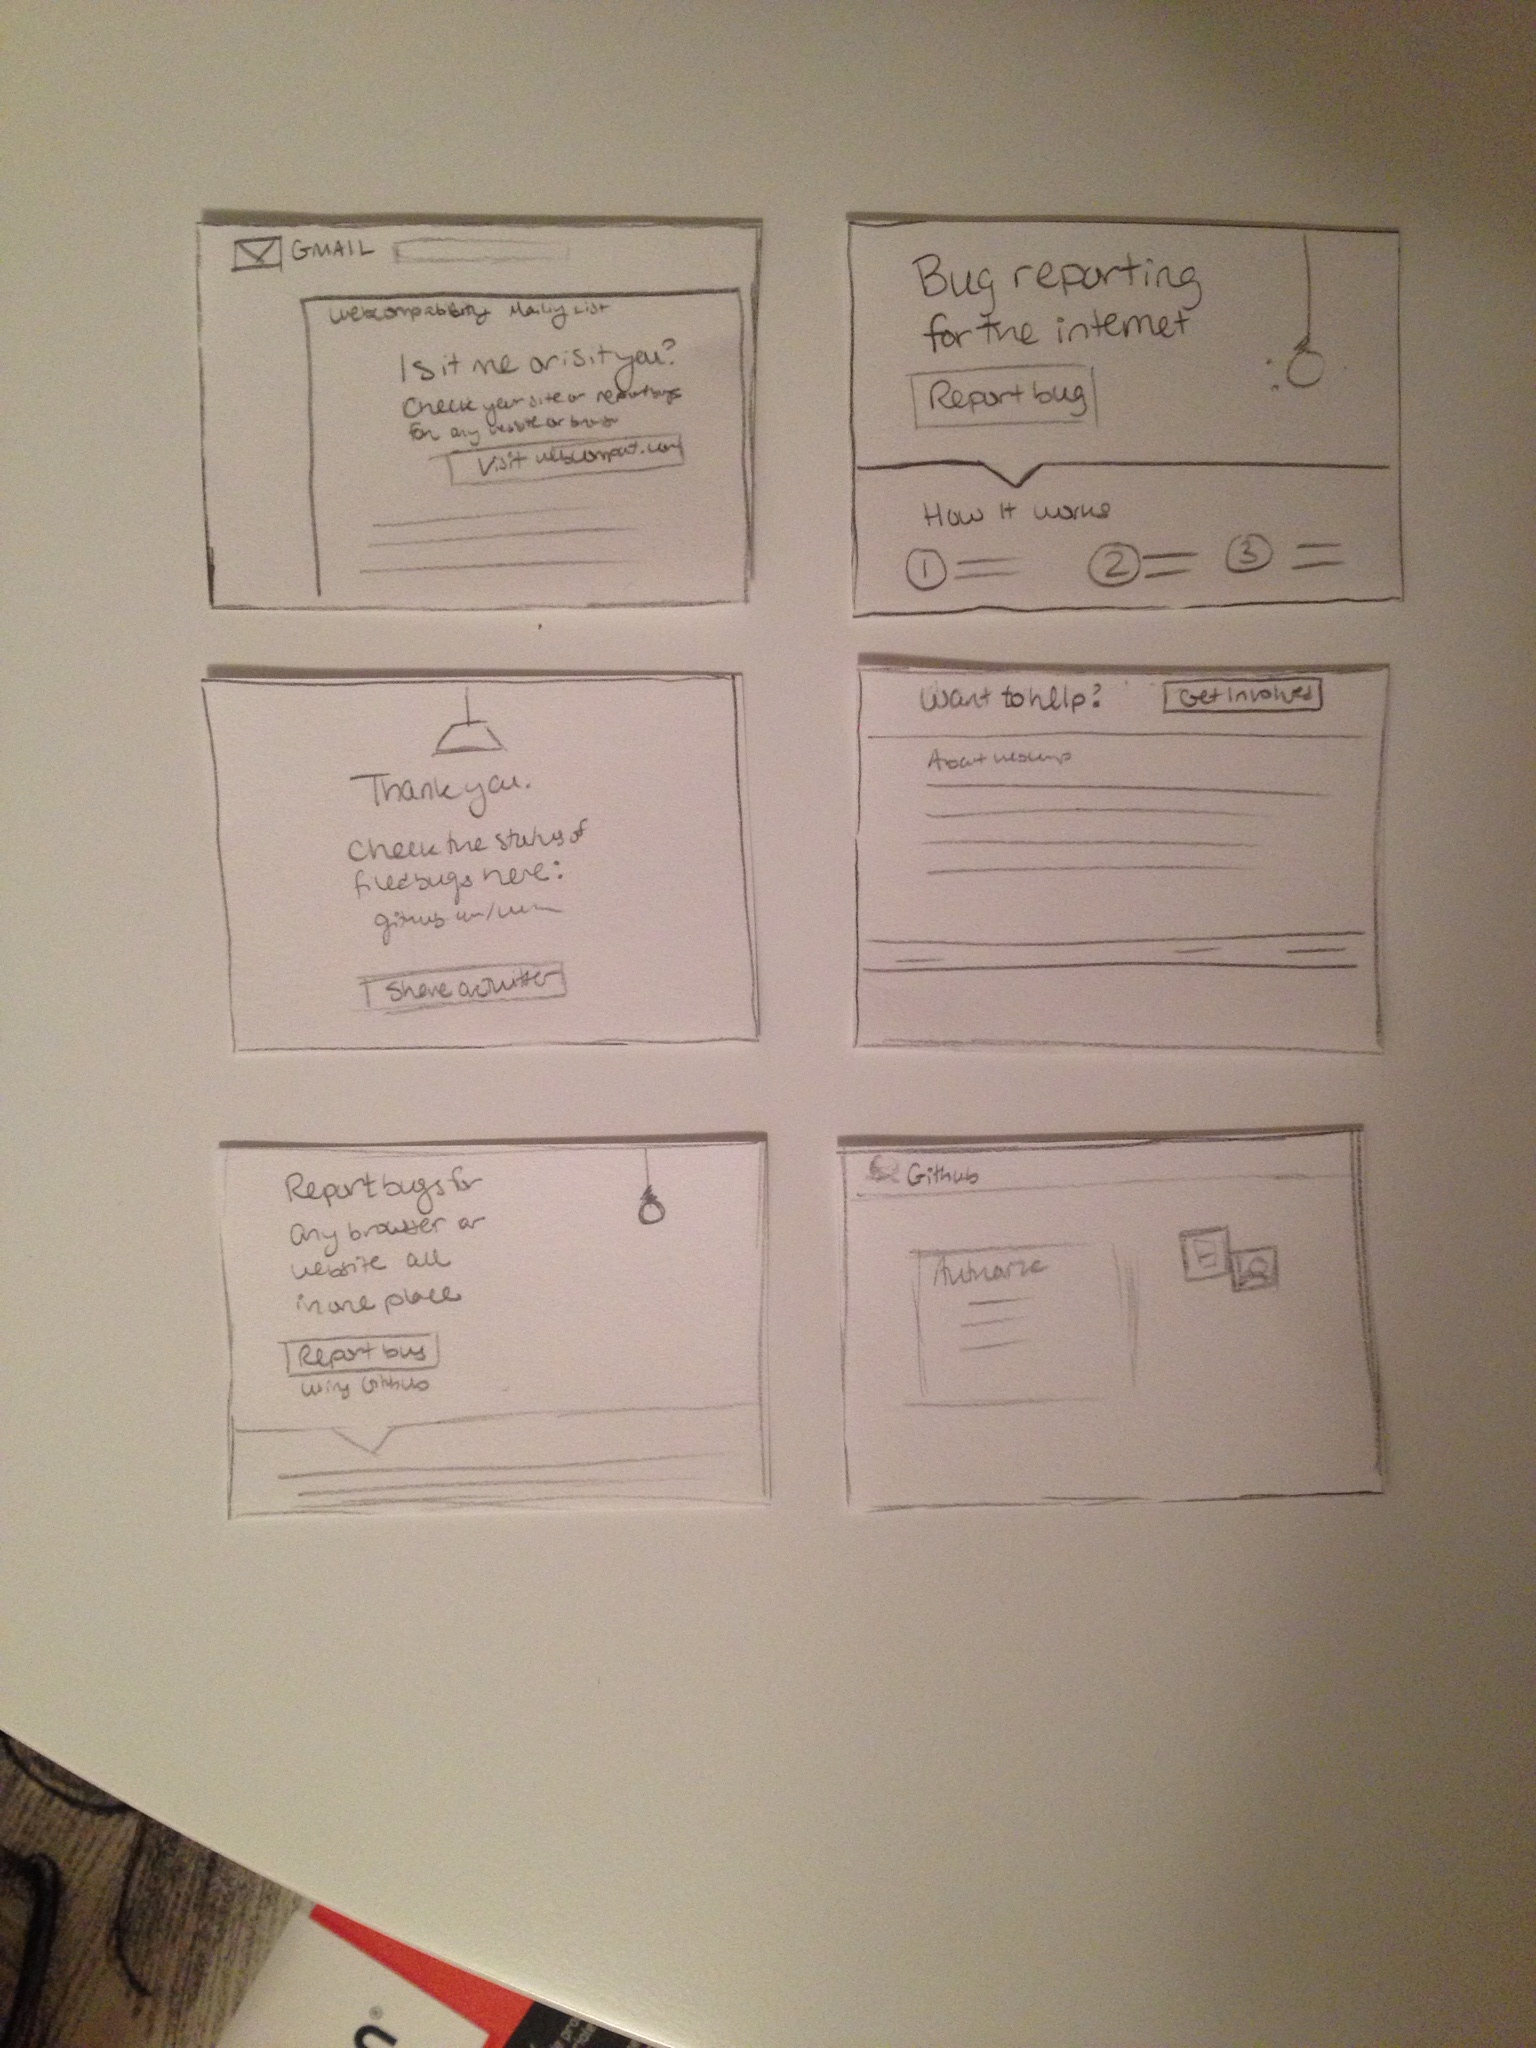 GMAIL
Webcompatibility Mailing List
Is it me or is it you?
Check your site or report bugs
for any website or browser
Visit webcompat.com
Bug reporting
for the internet
Report bug
How it works
1 2 3
Thank you.
Check the status of
filed bugs here:
Share on twitter
Want to help? Get Involved
About
Report bugs for
any browser or
website all
in one place
Report bug
Why Github
Github
Authorize
n®